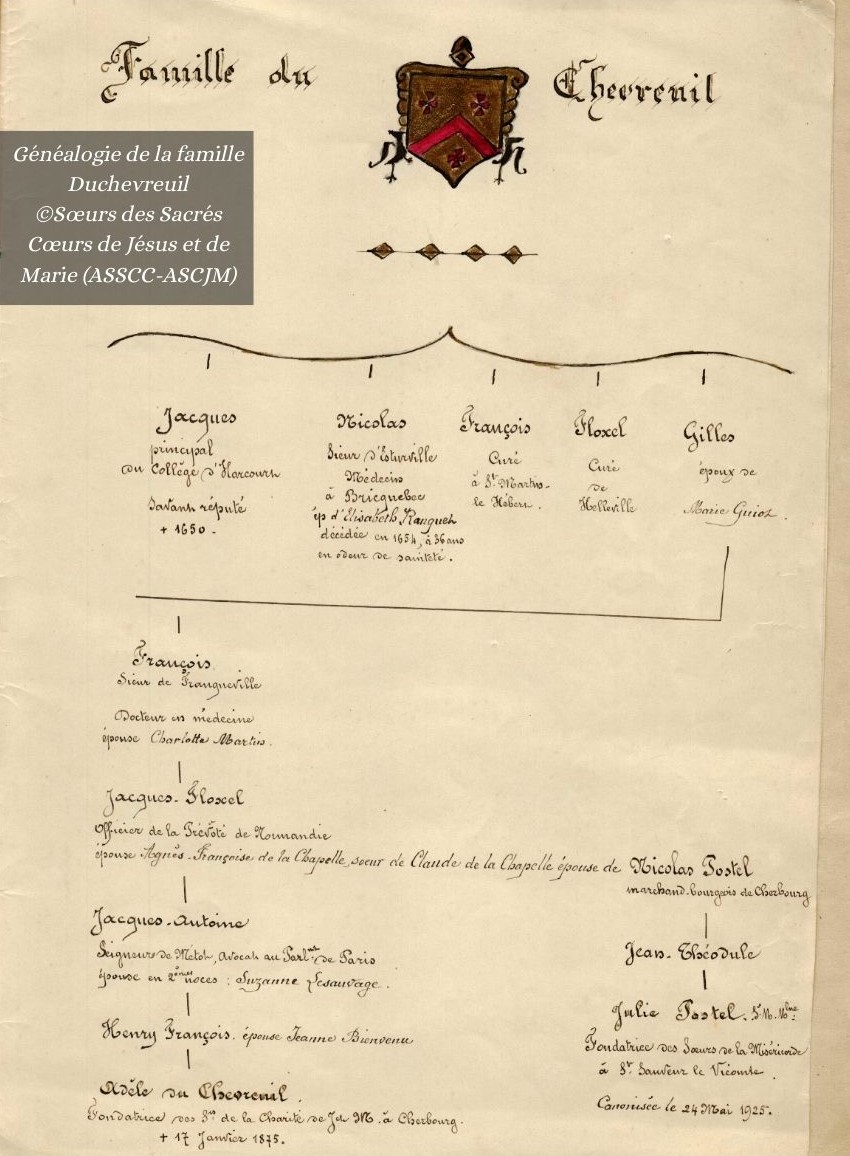 Famille du Chevreuil
Généalogie de la famille
Duchevreuil
©Sœurs des Sacrés
Cœurs de Jésus et de
Marie (ASSCC-ASCJM)
Jacques
principal
du Collège d'Harcourt
Savant réputé
+ 1650.
Nicolas
Sieur d'Esturville
Médecin
à Bricquebec
ép d'Elisabeth Ranquet
décédée en 1654, à 36 ans
en odeur de sainteté.
François
Curé
à St Martin-
le Hébert.
Floxel
Curé
de
Helleville
Gilles
époux de
Marie Guiot.
François
Sieur de Franqueville
Docteur en médecine
épouse Charlotte Martin.
Jacques-Floxel
Officier de la Prévôté de Normandie
épouse Agnès-Françoise de la Chapelle, soeur de Claude de la Chapelle épouse de Nicolas Postel
marchand-bourgeois de Cherbourg
Jacques-Antoine
Seigneur de Métot, avocat au Parlnt de Paris
épouse en 2èmes noces : Suzanne Lesauvage.
Henry François. épouse Jeanne Bienvenu
Adèle du Chevreuil.
Fondatrice des Srs de la Charité de J et M. à Cherbourg.
+ 17 Janvier 1875.
Jean-Théodule
Julie Postel.
Fondatrice des Soeurs de la Miséricorde
à St Sauveur le Vicomte.
Canonisée le 24 Mai 1925.